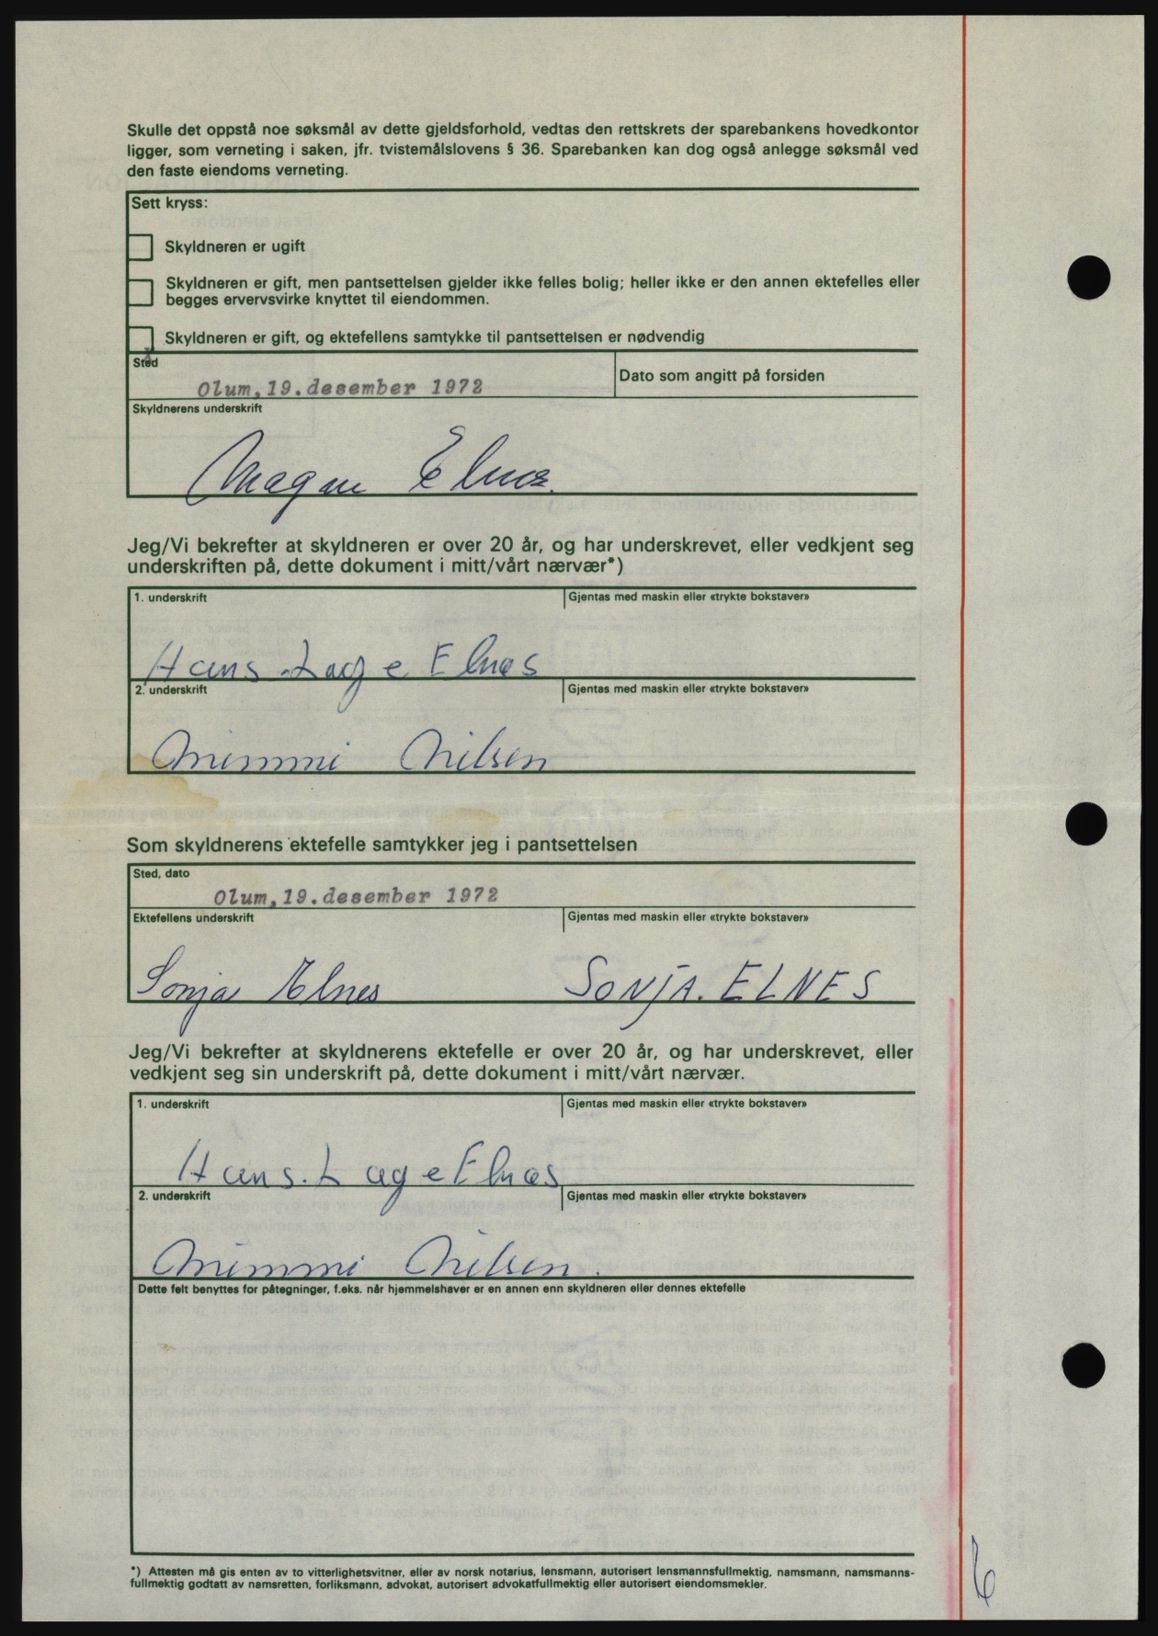 Skulle det oppstå noe søksmål av dette gjeldsforhold, vedtas den rettskrets der sparebankens hovedkontor
ligger, som verneting i saken, jfr. tvistemålslovens § 36. Sparebanken kan dog også anlegge søksmål ved
den faste eiendoms verneting.
Sett kryss:
Skyldneren er ugift
Skyldneren er gift, men pantsettelsen gjelder ikke felles bolig; heller ikke er den annen ektefelles eller
begges ervervsvirke knyttet til eiendommen.
Skyldneren er gift, og ektefellens samtykke til pantsettelsen er nødvendig
x
Sted
Olum, 19. desember 1972
Dato som angitt på forsiden
Skyldnerens underskrift
Magne Elnes.
Jeg/Vi bekrefter at skyldneren er over 20 år, og har underskrevet, eller vedkjent seg
underskriften på, dette dokument i mitt/vårt nærvær*)
1. underskrift
Gjentas med maskin eller «trykte bokstaver»
Hans. Lage Elnes
2. underskrift
Gjentas med maskin eller «trykte bokstaver»
Mimmi Nilsen
Som skyldnerens ektefelle samtykker jeg i pantsettelsen
Sted, dato
Olum, 19. desember 1972
Ektefellens underskrift
Gjentas med maskin eller «trykte bokstaver»
Sonja Elnes SONJA. ELNES
Jeg/Vi bekrefter at skyldnerens ektefelle er over 20 år, og har underskrevet, eller
vedkjent seg sin underskrift på, dette dokument i mitt/vårt nærvær.
1. underskrift
Gjentas med maskin eller «trykte bokstaver»
Hans. Lage Elnes
2. underskrift
Gjentas med maskin eller «trykte bokstaver»
Mimmi Nilsen.
Dette felt benyttes for påtegninger, f.eks. når hjemmelshaver er en annen enn skyldneren eller dennes ektefelle
*) Attesten må gis enten av to vitterlighetsvitner, eller av norsk notarius, lensmann, autorisert lensmannsfullmektig, namsmann, namsmanns-
fullmektig godtatt av namsretten, forliksmann, advokat, autorisert advokatfullmektig eller autorisert eiendomsmekler.